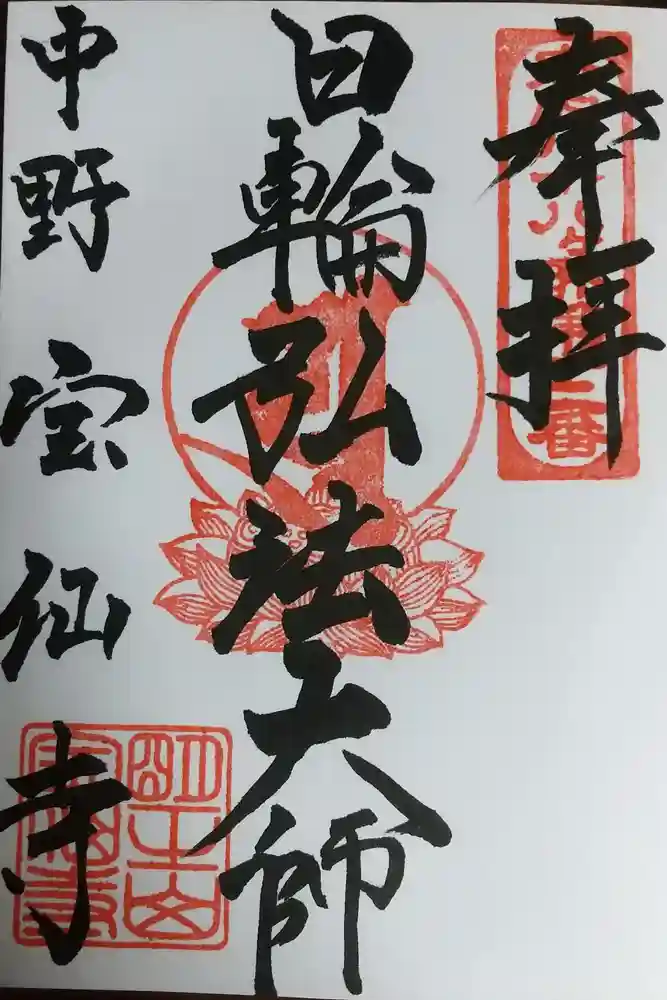 奉拝
日輪弘法大師
中野 宝仙寺
明王山